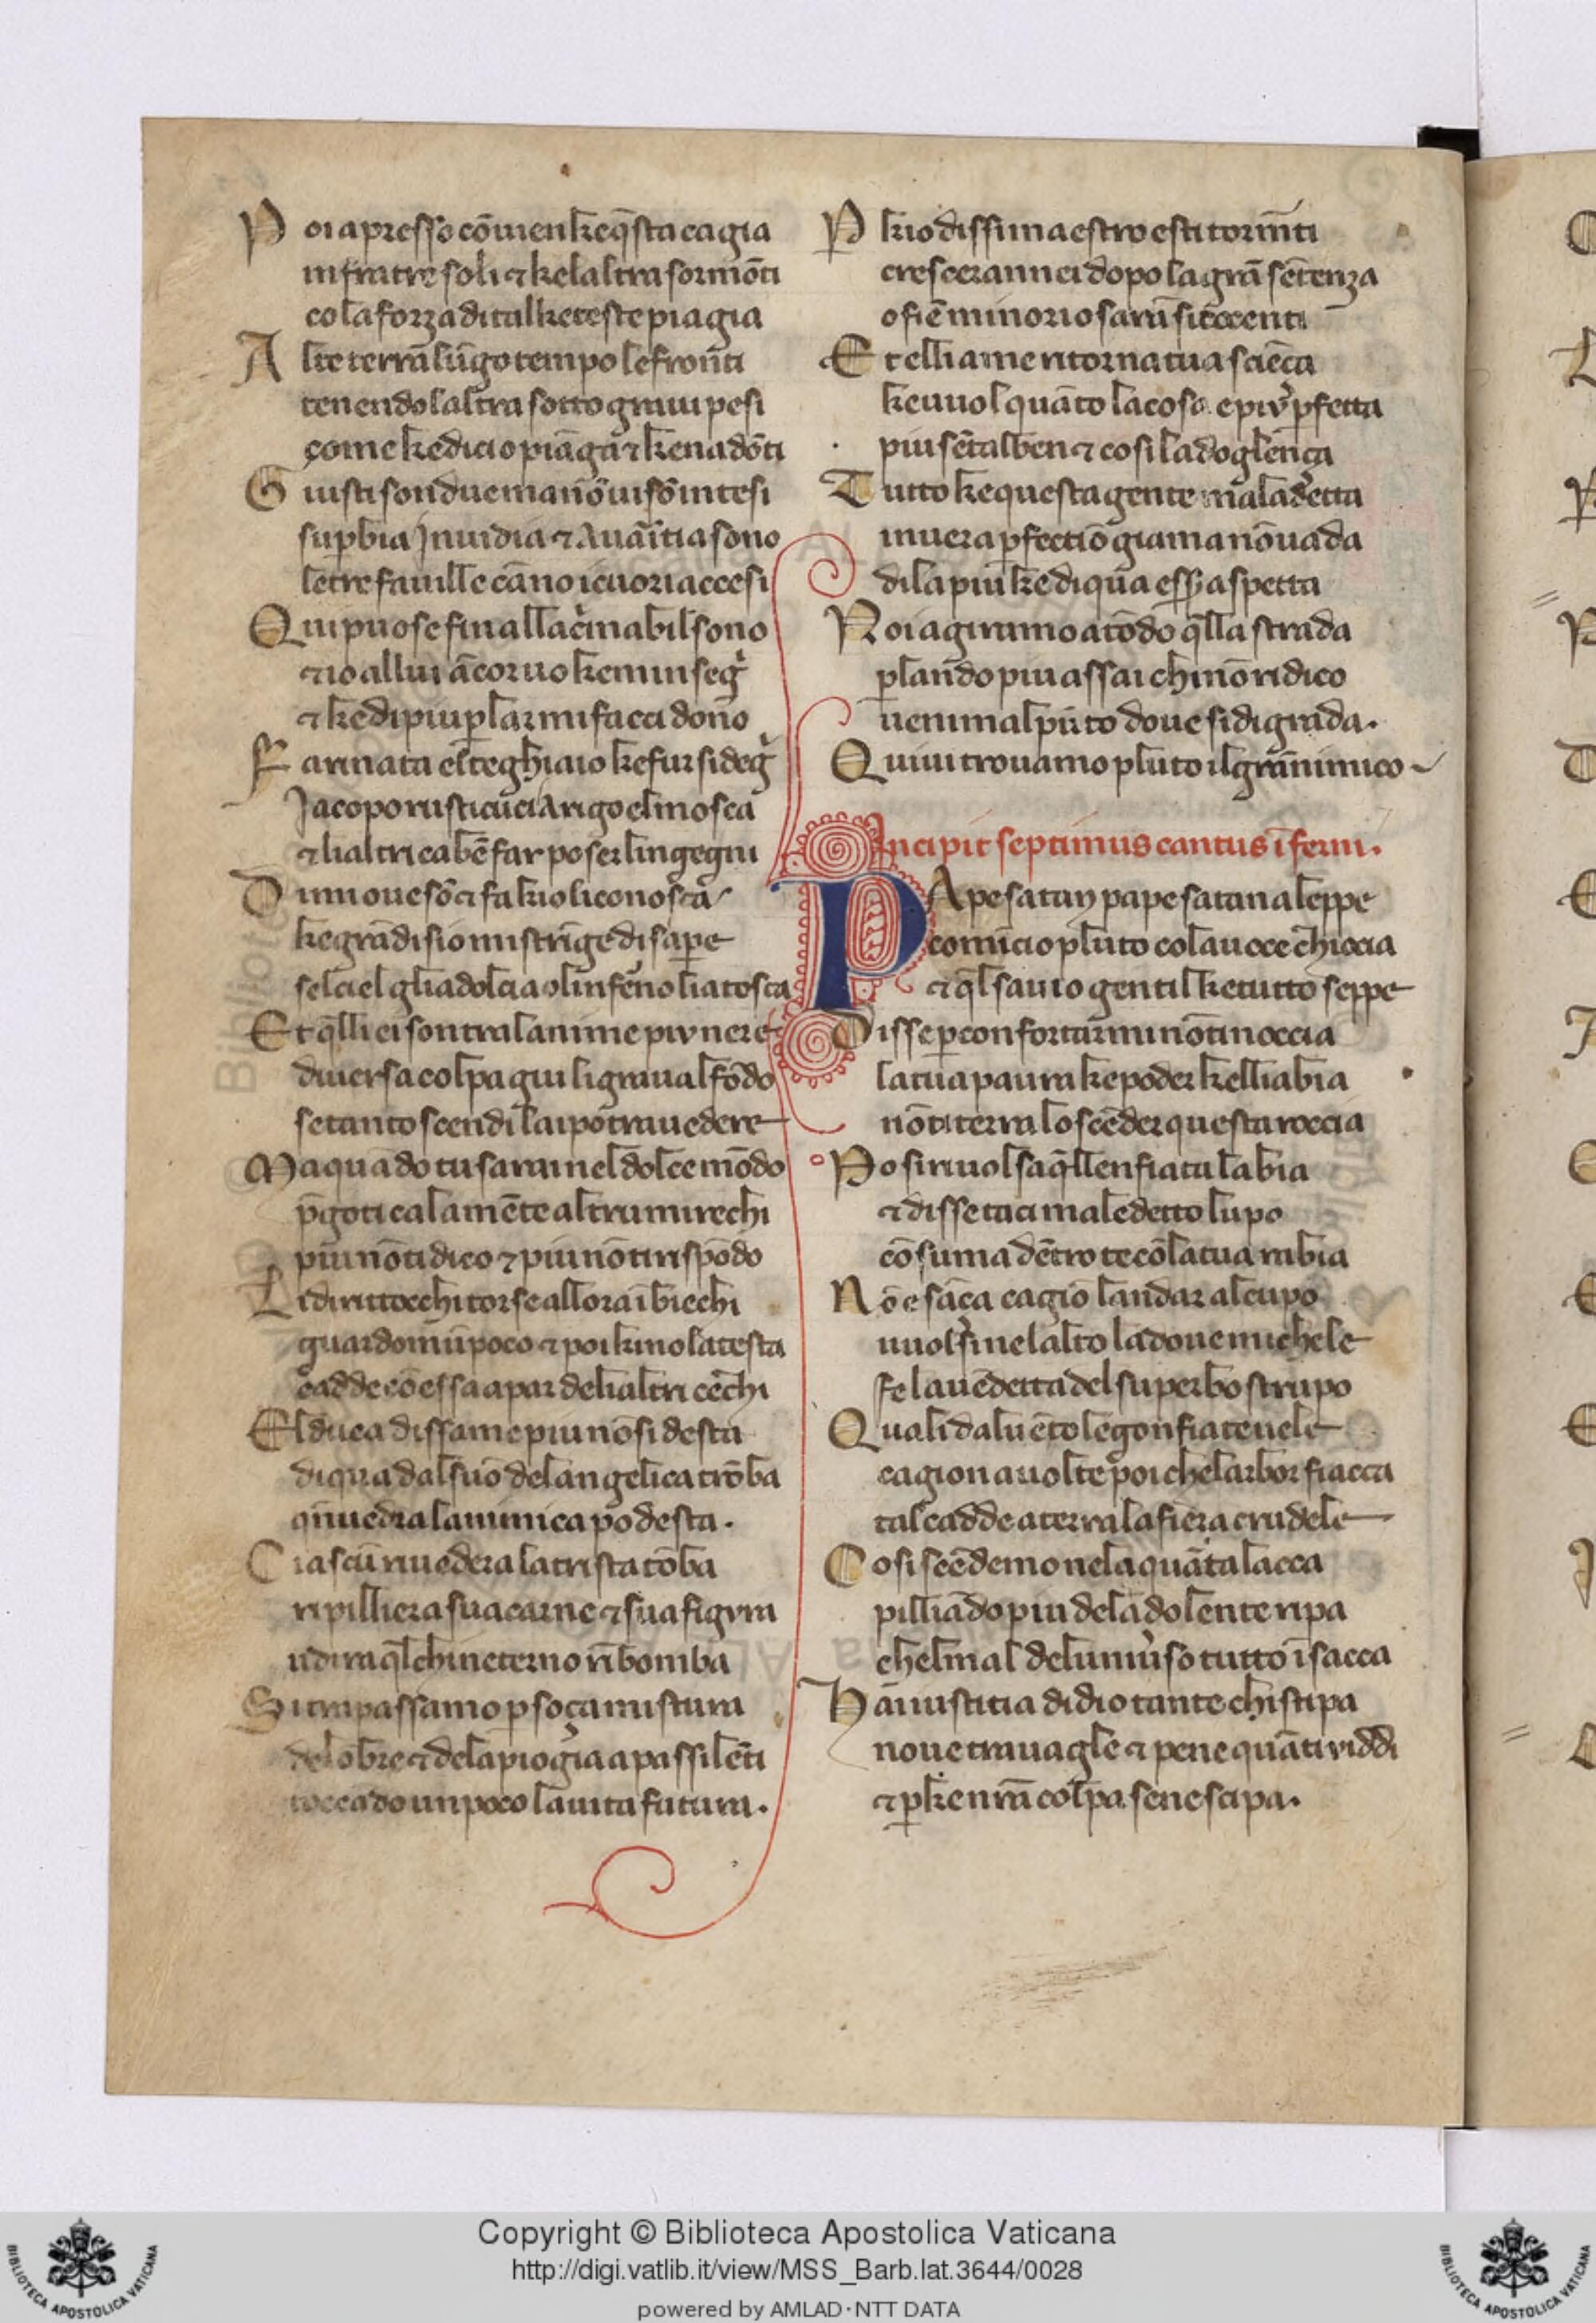 Poi apresso cōuien ke q̄sta cagia
infra tre soli ⁊ ke laltra sormōti
co la forza di tal ke te ste piagia
Alte terrà lūgo tempo le fronti
tenendo laltra sotto graui pesi
come ke di cio piāga ⁊ ke nadōti
Giusti son due ma nō ui sō intesi
supbia Jnuidia ⁊ Auaritia sono
le tre fauille cāno i cuori accesi
Qui puose fin al lacrimabil sono
⁊ io allui ācor uo ke minsegi
⁊ ke di piu plar mi faci dono
Farinata el teghiaio ke fur si degi
Jacopo rusticuci Arigo el mosca
⁊ li altri ca bē far poser lingegni
Dimmi oue sō ⁊ fa kio li conosca
ke grā disio mi strīge di sapere
sel ciel gli adolcia o linferno li atosca
Et q̄lli ei son tra lanime piu nere
diuersa colpa giu li graua al fōdo
se tanto scendi lai potra uedere
Ma quādo tu sarai nel dolce mōdo
p̄goti ca la mēte altrui mi rechi
piu nō ti dico ⁊ piu nō ti rispōdo
Li diritti occhi torse allora ī biechi
guardomi ū poco ⁊ poi kino la testa
cadde cō essa a par de li altri cechi
El duca dissa me piu nō si desta
di qua dal suō de langelica trōba
qn̄ uedra la nimica podesta.
Ciascū riuedera la trista tōba
ripilliera sua carne ⁊ sua figura
udira q̄l chin eterno rībomba
Si trapassamo p soça mistura
de lōbre ⁊ de la piogia a passi lēti
toccādo un poco la uita futura.
P kio dissi maestro esti tormti
crescerānnei dopo la grā sētenza
o fiē minori o sarā si cocenti
Et elli a me ritorna tua sciēça
ke uuol quāto la cosa e piu pfetta
piu sēta l ben ⁊ cosi la doglença
Tutto ke questa gente maladetta
in uera pfectiō giamai nō uada
di la piu ke di qua esser aspetta
Noi agiramo a tōdo q̄lla strada
plando piu assai chi nō ridico
uenimo al pūto doue si digrada.
Quiui trouamo pluto il gran nimico
Incipit septimus cantus īferni.
PApe satan pape satan aleppe
comicio pluto co la uoce chioccia
⁊ q̄l sauio gentil ke tutto seppe
Disse p confortarmi nō ti noccia
la tua paura ke poder kelli abia
nō ti terra lo scēder questa roccia
Po si riuolse a q̄llenfiata labia
⁊ disse taci maledetto lupo
cōsuma dētro te cō la tua rabia
Nō e sāça cagiō landar al cupo
uuolsi ne lalto la doue michele
fe la uēdetta del superbo strupo
Quali dal uēto le gonfiate uele
cagion auolte poi che larbor fiacca
tal cadde a terra la fiera crudele
Cosi scēdemo ne la quāta lacca
pilliādo piu de la dolente ripa
chel mal de luniuso tutto īsacca
Hai iustitia di dio tante chi stipa
noue trauagle ⁊ pene quāti uiddi
⁊ p ke nrā colpa se ne scipa.
Copyright © Biblioteca Apostolica Vaticana
http://digi.vatlib.it/view/MSS_Barb.lat.3644/0028
powered by AMLAD·NTT DATA
BIBLIOTECA APOSTOLICA VATICANA
BIBLIOTECA APOSTOLICA VATICANA